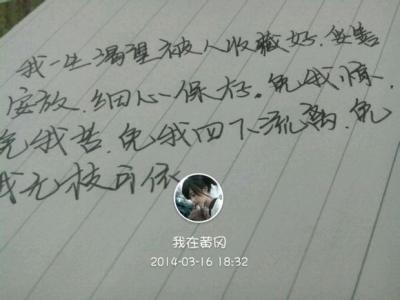 我一生渴望被人收藏好,妥善
安放,细心保存。免我惊,
免我苦,免我四下流离,免
我无枝可依
我在黄冈
2014-03-16 18:32